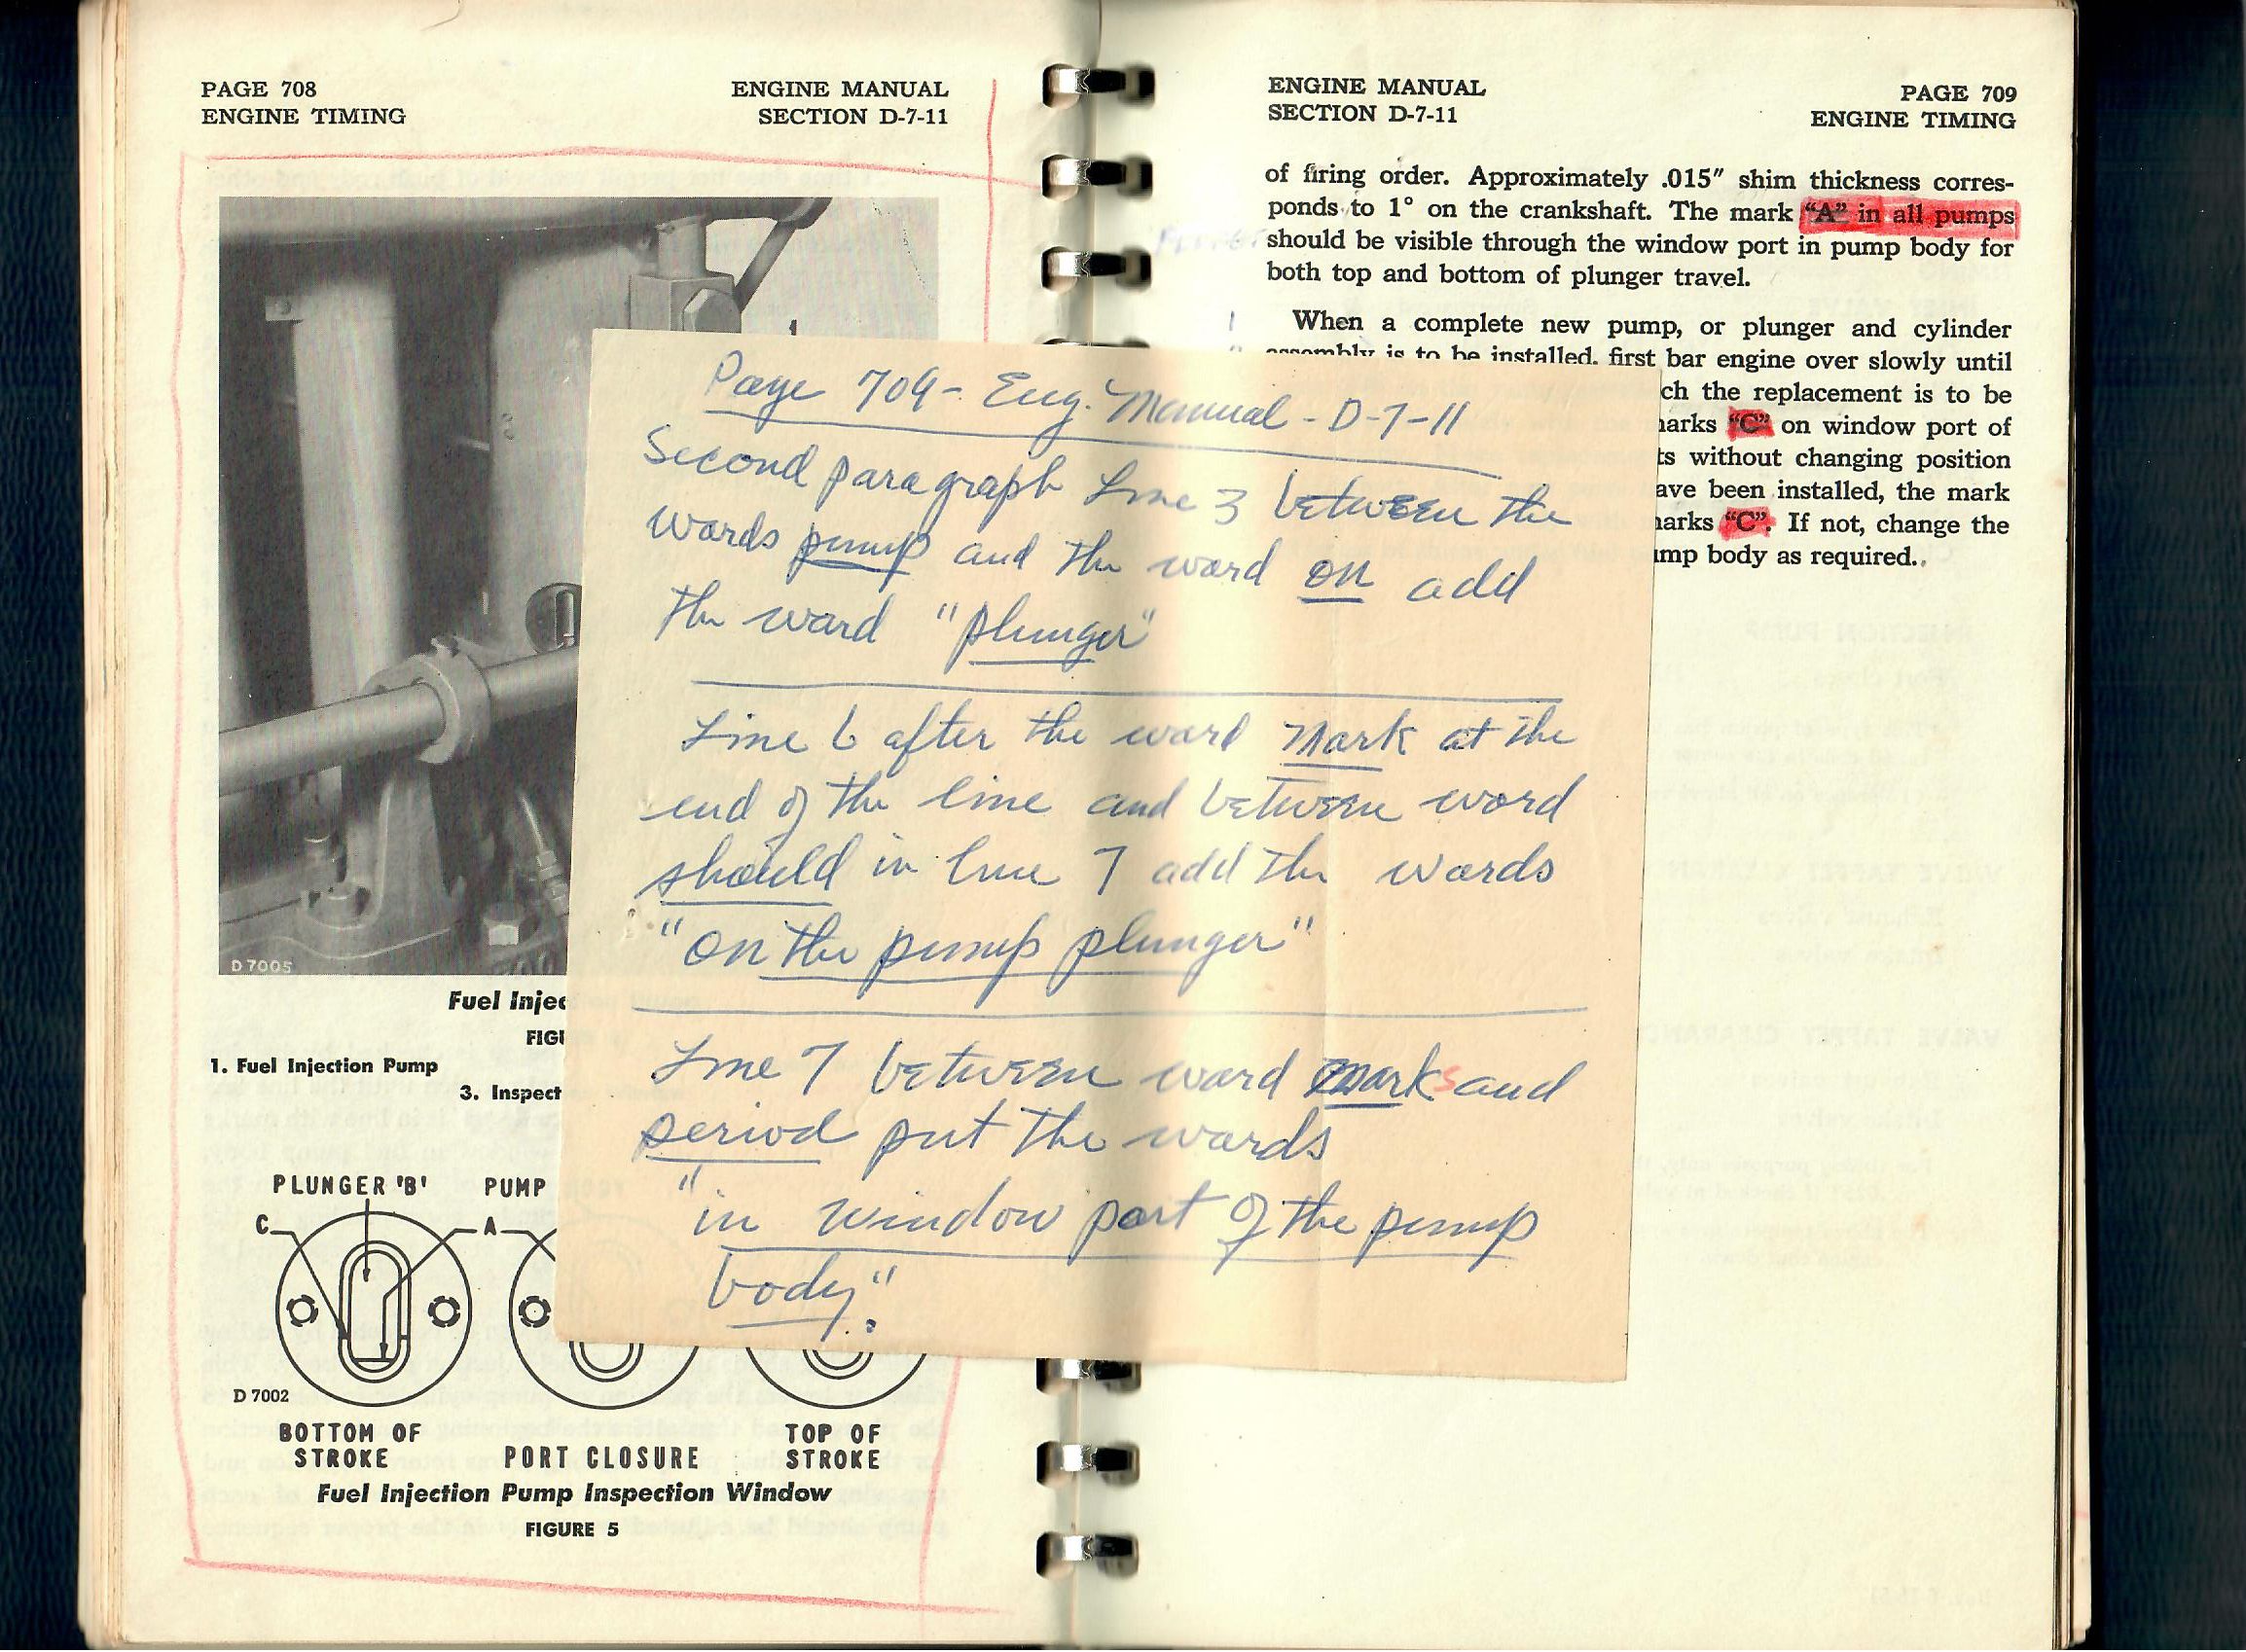 PAGE 708
ENGINE TIMING
ENGINE MANUAL
SECTION D-7-11
D 7005
Fuel Injec
FIGU
1. Fuel Injection Pump
3. Inspect
PLUNGER 'B' PUMP
C A
D 7002
BOTTOM OF
STROKE
PORT CLOSURE
TOP OF
STROKE
Fuel Injection Pump Inspection Window
FIGURE 5
Page 709 - Eng. Manual - D-7-11
Second paragraph Line 3 between the
words pump and the word on add
the word "plunger"
Line 6 after the word Mark at the
end of the line and between word
should in line 7 add the words
"on the pump plunger"
Line 7 between word marks and
period put the words
"in window port of the pump
body".
ENGINE MANUAL
SECTION D-7-11
PAGE 709
ENGINE TIMING
of firing order. Approximately .015″ shim thickness corres-
ponds to 1° on the crankshaft. The mark “A” in all pumps
should be visible through the window port in pump body for
both top and bottom of plunger travel.
When a complete new pump, or plunger and cylinder
assembly is to be installed, first bar engine over slowly until
ch the replacement is to be
arks “C” on window port of
ts without changing position
ave been installed, the mark
arks “C”. If not, change the
mp body as required.